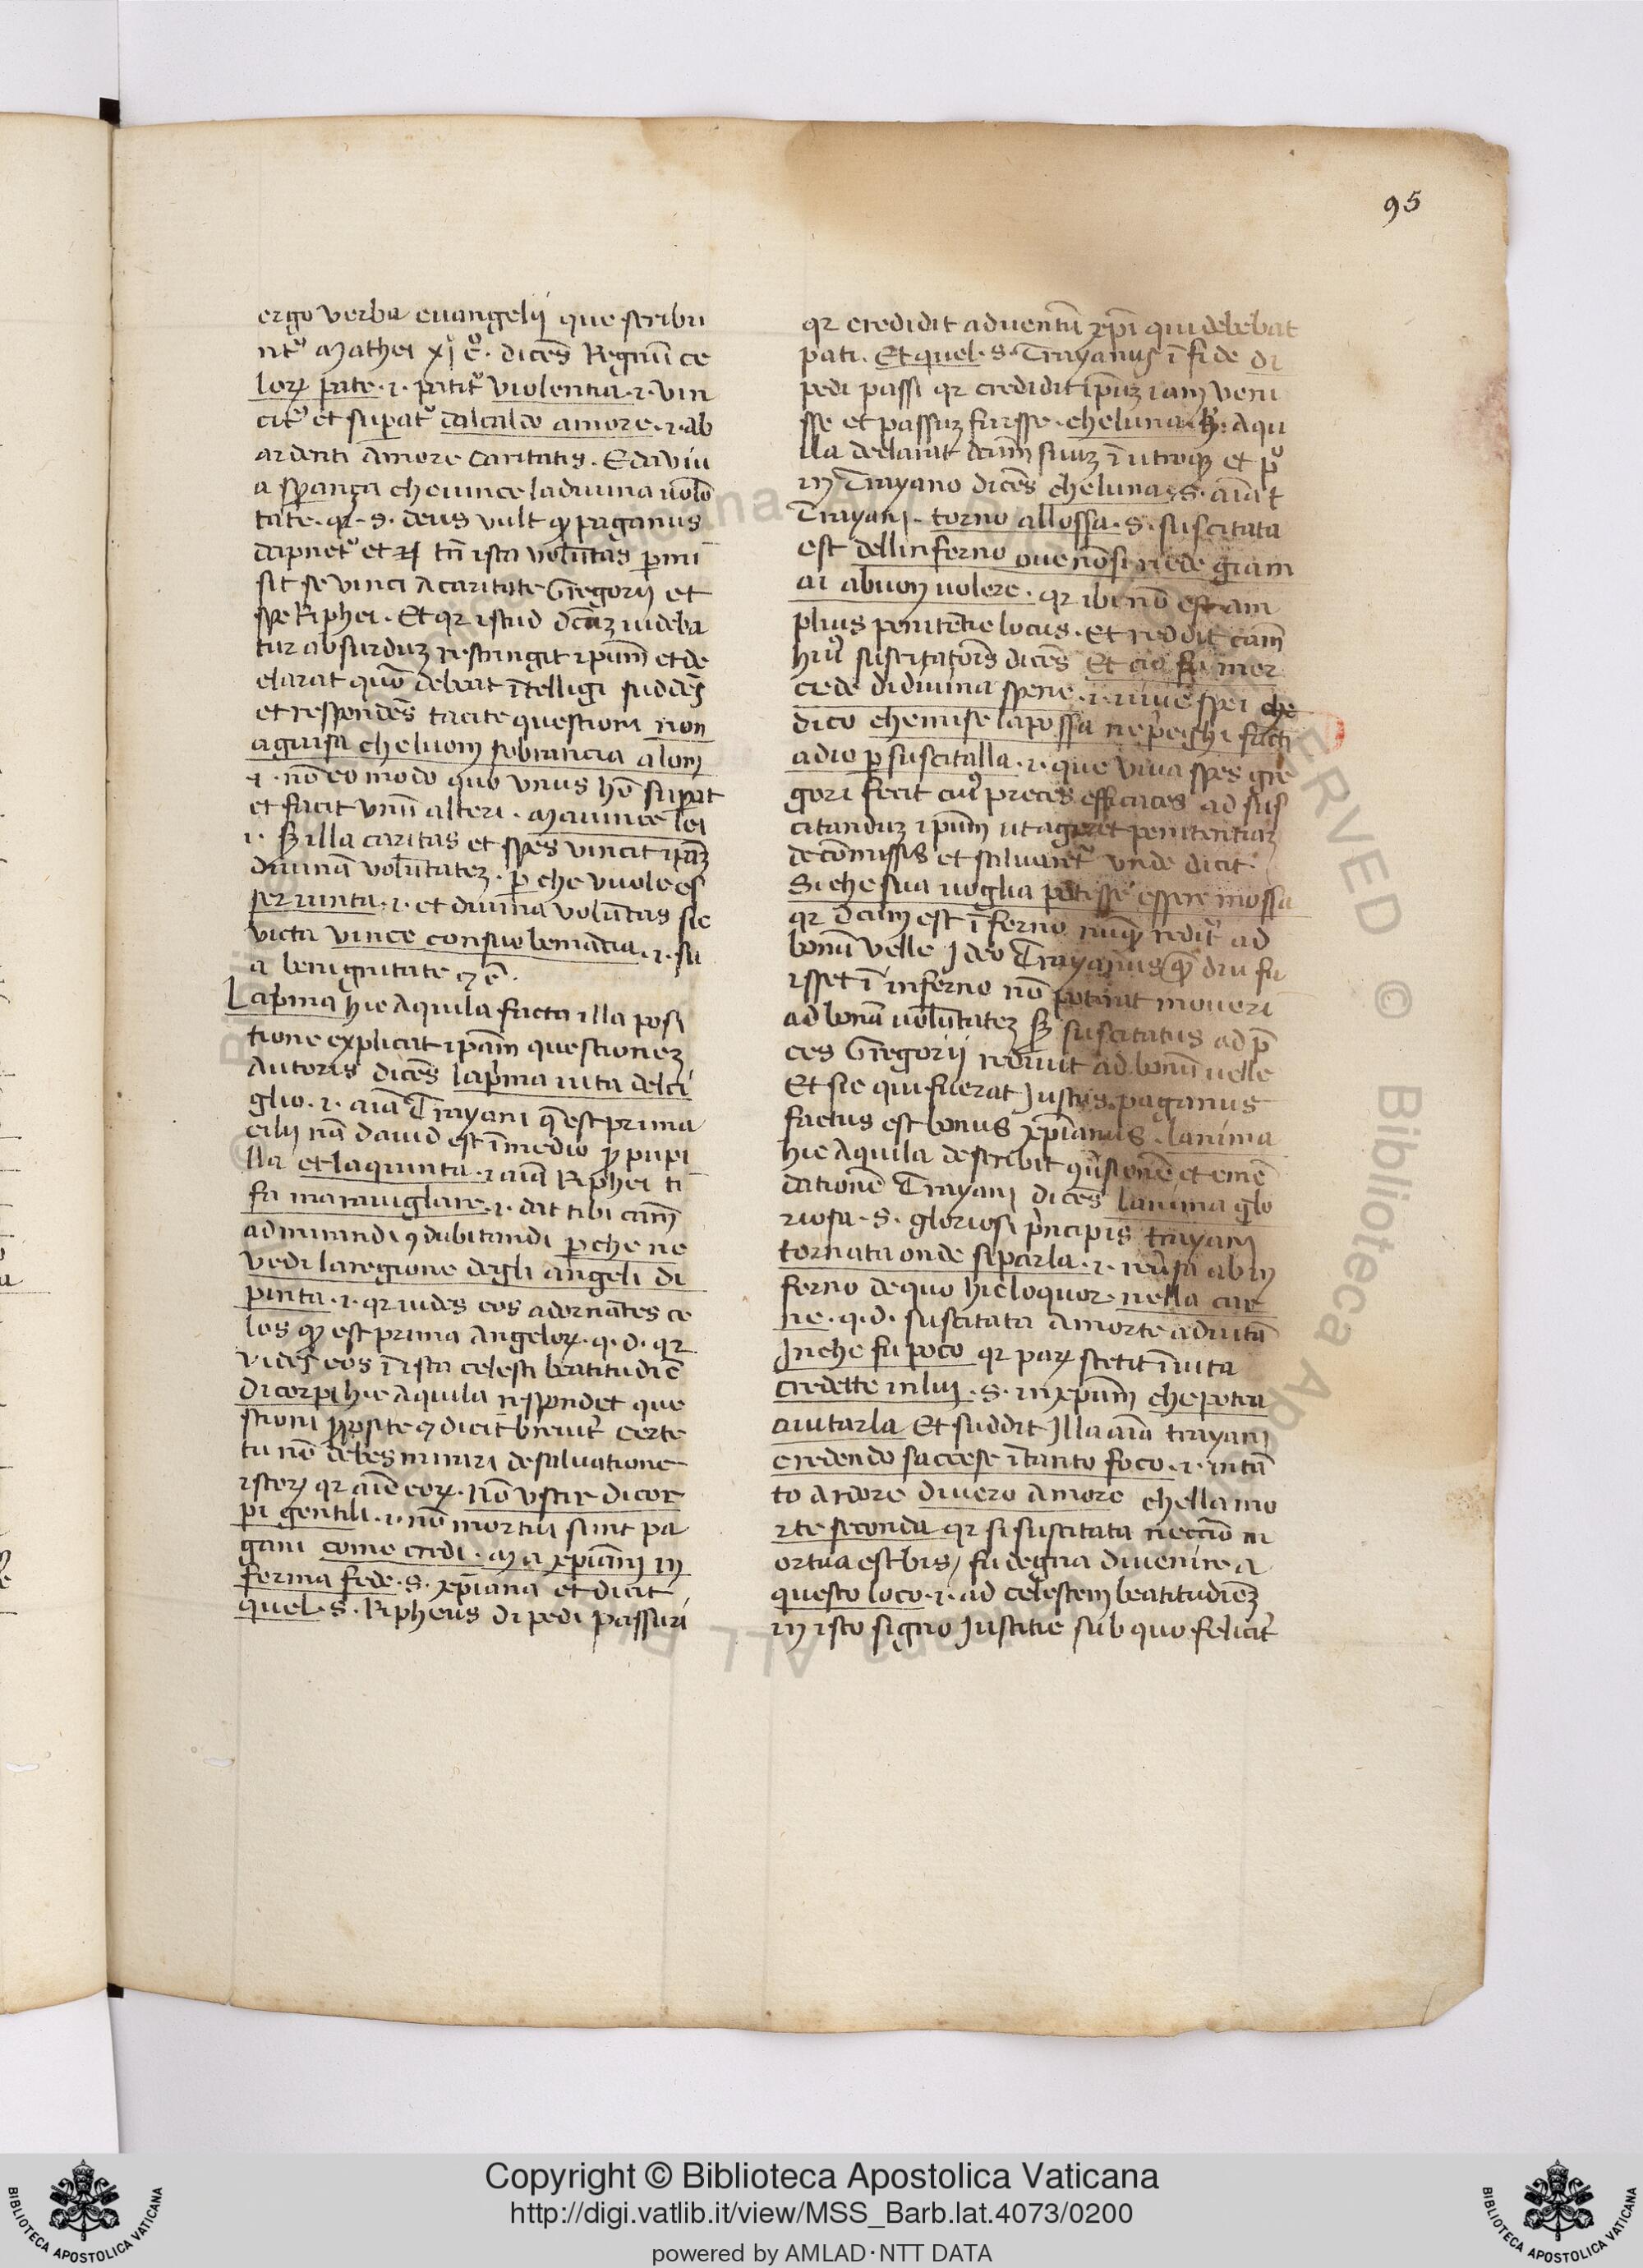 95
ergo verba euangelij que scribu
nt᷒ Mathei xj c̊. dicēs Regnū ce
loꝝ pate .i. patit᷒ violentia .i. vin
cit᷒ et supat᷒ dalcaldo amore .i. ab
ardenti amore caritatis. E daviu
a sperança che vince la diuina uolō
tate. qꝛ .s. deus vult ꝙ paganus
dāpnet᷒ et tn̄ ista volūtas ꝑmi
sit se vinci a caritate Gregorij et
spe Riphei. Et qꝛ istud dc̄ūz uideba
tur absurduz restringit ipūm et de
clarat quō debeat ītelligi
et respondēs tacite questioni non
aguisa che luom sobrancia alom
.i. nō eo modo quo vnus hō supat
et facit vim alteri. Mauince lei
.i. sꝫ illa caritas et spes vincit ipāz
diuinā volūtatez. ꝑche vuole es
ser uinta .i. et diuina voluntas sic
victa vince con suo beninācia .i. su
a benignitate ⁊c̄.
La pͥma hic Aquila facta illa posi
tione explicat ipām questionez
Autoris dicēs la pͥma uita del ci
glio .i. aīa Trayani q̄ est prima
cilij nā dauid est ī medio ꝓ pupi
lla et la quinta .i. aīa Riphei ti
fa marauiglare .i. dat tibi cām
admirandi ⁊ dubitandi ꝑche ne
vedi la regione degli angeli di
pinta .i. qꝛ uides eos adornātes ce
los ꝙ est pͥma Angeloꝝ. q. d. qꝛ
vides eos ī ista celesti beatitudīe
Di corpi hic Aquila respondet que
stioni ꝓposite ⁊ dicit breuit᷒ certe
tu nō debes mirari de saluatione
istoꝝ qꝛ aīe eoꝝ. Nō vscir di cor
pi gentili .i. nō mortui sunt pa
gani come credi. Ma xp̄iāni in
ferma fede .s. xp̄iana et dicit
quel .s. Ripheus di pedi passuri
qꝛ credidit aduentū xp̄i qui debebat
pati. Et quel .s. Trayanus ī fide di
pedi passi qꝛ credidit ipūz iam veni
sse et passuz fuisse. che luna hͥ Aqu
ila declarat dictum suuz ī utroqꝫ et pͦ
in Trayano dicēs che luna .s. aīa
Trayani. torno allossa .s. suscitata
est dellinferno oue nō si riede giam
ai abuon uolere. qꝛ ibi nō est am
plius penitētie locus. Et reddit cām
huꝰ suscitatiōis dicēs Et cio fu mer
cede di diuina spene .i. uiue spei che
dico che mise la possa ne preghi facti
adio ꝑ suscitalla .i. que viua spes gre
gori fecit cuꝰ preces efficaces ad sus
citanduz ipūm ut ageret penitentiaz
de cōmissis et saluaret᷒ vnde dicit
Si che sua uoglia potesse essere mossa
qꝛ dictum est ī ferno nūqꝫ redit᷒ ad
bonū velle Ideo Trayanus qͥ diu fu
isset ī inferno nō poterat moueri
ad bonā uolūtatez sꝫ suscitatus ad p̄
ces Gregorij rediuit ad bonū uelle
Et sic qui fuerat Justus paganus
factus est bonus xp̄ianus. lanima
hic Aquila describit et emē
dationē Trayani dicēs lanima glo
riosa .s. gloriosi pͥncipis trayani
tornata onde si parla .i. reūsa ab in
ferno de quo hic loquor. nella car
ne. q. d. suscitata a morte ad uitā
In che fu poco qꝛ paꝝ stetit ī uita
credette in lui .s. in xp̄um che potea
aiutarla Et suddit Illa aīa trayani
credendo saccese ī tanto foco .i. in tā
to ardore di uero amore che lla mo
rte seconda qꝛ si suscitata m
ortua est bis, fu degna di uenire a
questo loco .i. ad celestem beatitudīez
in isto signo Justitie sub quo felicit᷒
Copyright © Biblioteca Apostolica Vaticana
http://digi.vatlib.it/view/MSS_Barb.lat.4073/0200
powered by AMLAD·NTT DATA
BIBLIOTECA APOSTOLICA VATICANA
BIBLIOTECA APOSTOLICA VATICANA